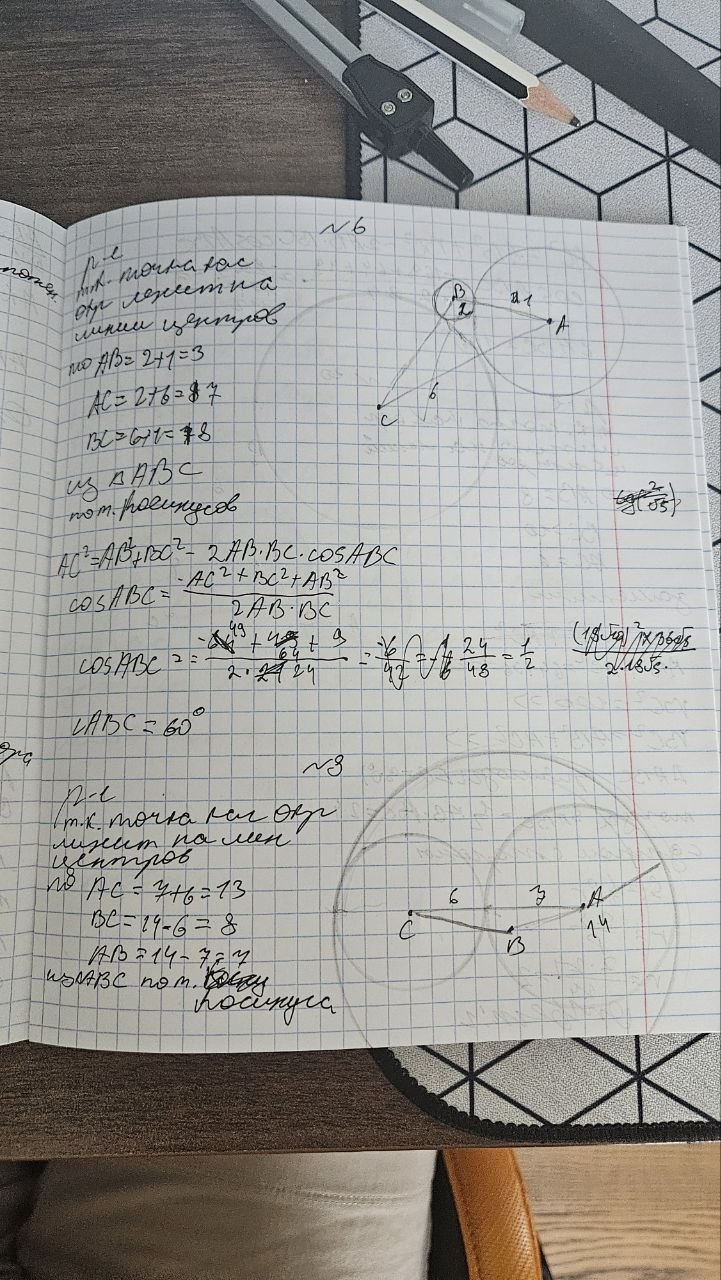 №6
р-е
т.к. точка кас
окр лежит на
линии центров
то AB=2+1=3
AC=2+6=7
BC=6+1=8
из △ABC
по т. косинусов
AC²=AB²+BC²- 2AB·BC·cosABC
cosABC= -AC²+BC²+AB² / 2AB·BC
cosABC = -49+64+9 / 2·24 = 24/48 = 1/2
∠ABC=60°
B
2
1
A
6
C
№9
р-е
т.к. точка кас окр
лижит на лин
центров
то AC=7+6=13
BC=14-6=8
AB=14-7=7
из ABC по т.
косинуса
6
7
A
C
B
14